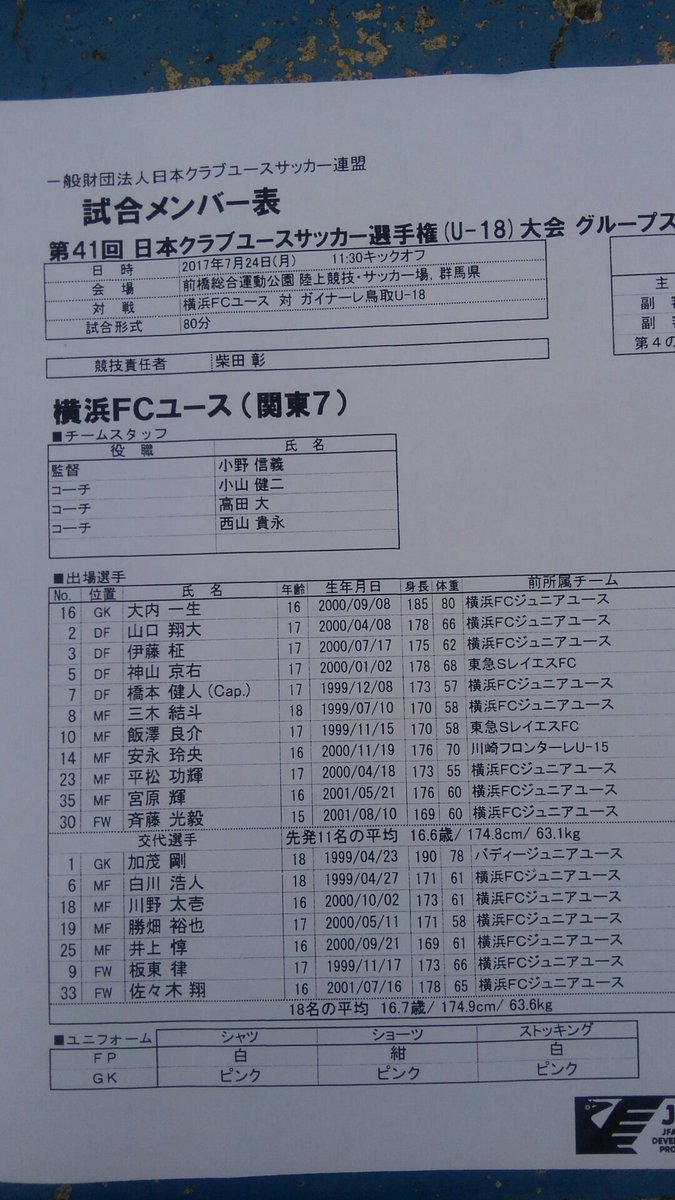 一般財団法人日本クラブユースサッカー連盟
試合メンバー表
第41回 日本クラブユースサッカー選手権(U-18)大会 グループス
日 時 2017年7月24日(月) 11:30キックオフ
会 場 前橋総合運動公園 陸上競技・サッカー場, 群馬県
対 戦 横浜FCユース 対 ガイナーレ鳥取U-18
試合形式 80分
主
副
副
第4の
競技責任者 柴田 彰
横浜FCユース(関東7)
■チームスタッフ
役 職 氏 名
監督 小野 信義
コーチ 小山 健二
コーチ 高田 大
コーチ 西山 貴永
■出場選手
No. 位置 氏 名 年齢 生年月日 身長 体重 前所属チーム
16 GK 大内 一生 16 2000/09/08 185 80 横浜FCジュニアユース
2 DF 山口 翔大 17 2000/04/08 178 66 横浜FCジュニアユース
3 DF 伊藤 柾 17 2000/07/17 175 62 横浜FCジュニアユース
5 DF 神山 京右 17 2000/01/02 178 68 東急SレイエスFC
7 DF 橋本 健人(Cap.) 17 1999/12/08 173 57 横浜FCジュニアユース
8 MF 三木 結斗 18 1999/07/10 170 58 横浜FCジュニアユース
10 MF 飯澤 良介 17 1999/11/15 170 58 東急SレイエスFC
14 MF 安永 玲央 16 2000/11/19 176 70 川崎フロンターレU-15
23 MF 平松 功輝 17 2000/04/18 173 55 横浜FCジュニアユース
35 MF 宮原 輝 16 2001/05/21 176 60 横浜FCジュニアユース
30 FW 斉藤 光毅 15 2001/08/10 169 60 横浜FCジュニアユース
交代選手 先発11名の平均 16.6歳/ 174.8cm/ 63.1kg
1 GK 加茂 剛 18 1999/04/23 190 78 バディージュニアユース
6 MF 白川 浩人 18 1999/04/27 171 61 横浜FCジュニアユース
18 MF 川野 太壱 16 2000/10/02 173 61 横浜FCジュニアユース
19 MF 勝畑 裕也 17 2000/05/11 171 58 横浜FCジュニアユース
25 MF 井上 惇 16 2000/09/21 169 61 横浜FCジュニアユース
9 FW 板東 律 17 1999/11/17 173 66 横浜FCジュニアユース
33 FW 佐々木 翔 16 2001/07/16 178 65 横浜FCジュニアユース
18名の平均 16.7歳/ 174.9cm/ 63.6kg
■ユニフォーム シャツ ショーツ ストッキング
FP 白 紺 白
GK ピンク ピンク ピンク
JFA
DEVE
PRO